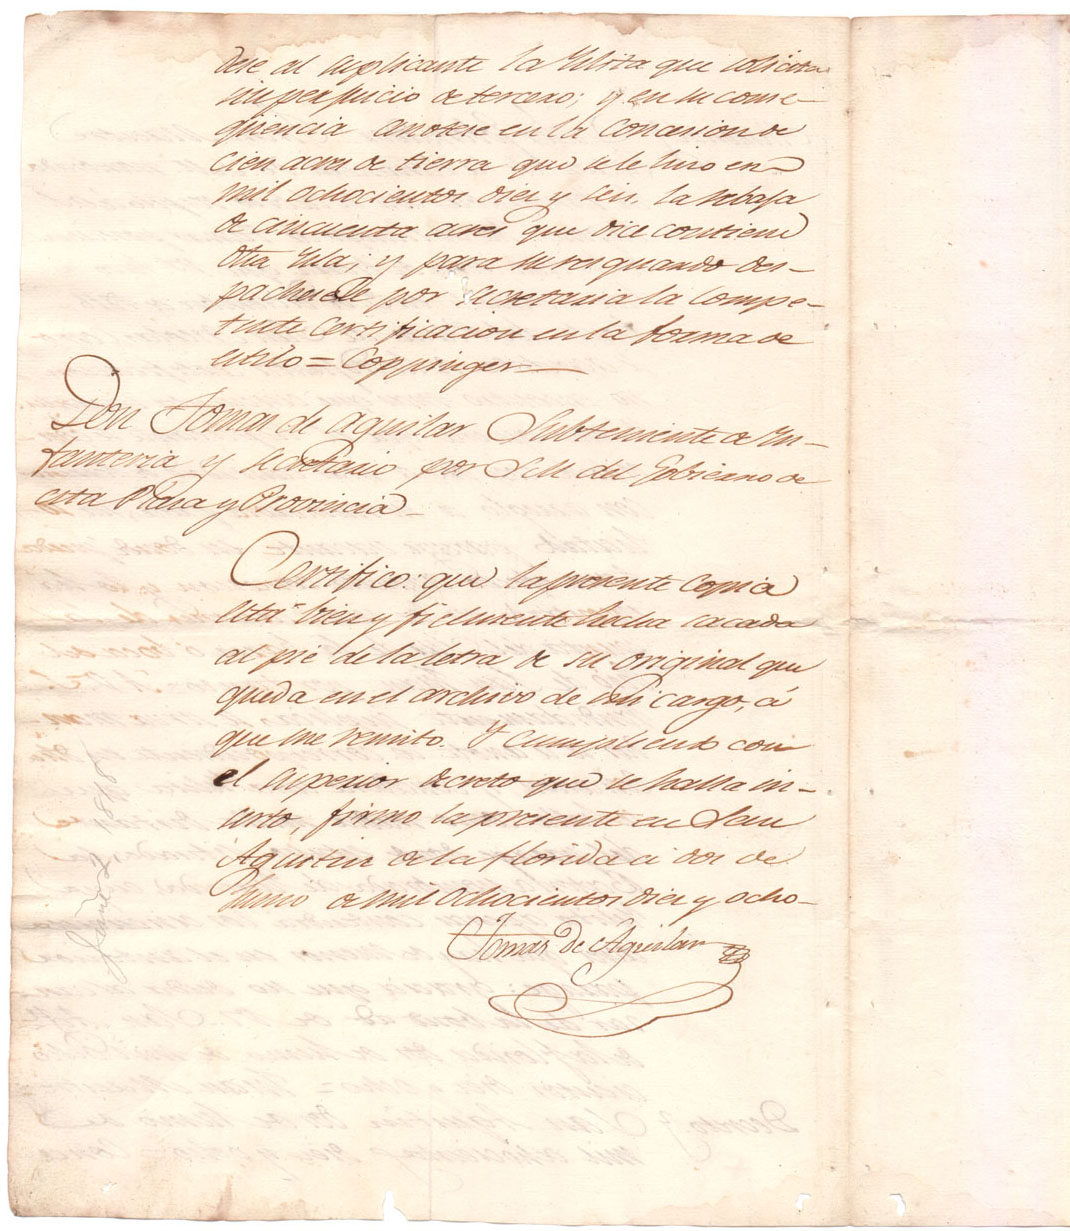 dese al suplicante la Islita que solicita
sin perjuicio de tercero; y en su conse-
qüencia anotese en la Concesion de
cien acres de tierra que se le hizo en
mil ochocientos diez y seis, la rebaja
de cincuenta acres que dice contiene
dha Isla; y para su resguardo des-
pachesele por Secretaria la compe-
tente Certificacion en la forma de
estilo = Coppinger
Don Tomas de Aguilar Subteniente de In-
fanteria y Secretario por S M del Gobierno de
esta Plaza y Provincia
Certifico: que la presente Copia
está bien y fielmente hecha sacada
al pie de la letra de su original que
queda en el archivo de mi cargo, á
que me remito. Y cumpliendo con
el superior decreto que se halla in-
serto, firmo la presente en San
Agustin de la Florida á dos de
Junio de mil ochocientos diez y ocho-
Tomas de Aguilar
1818